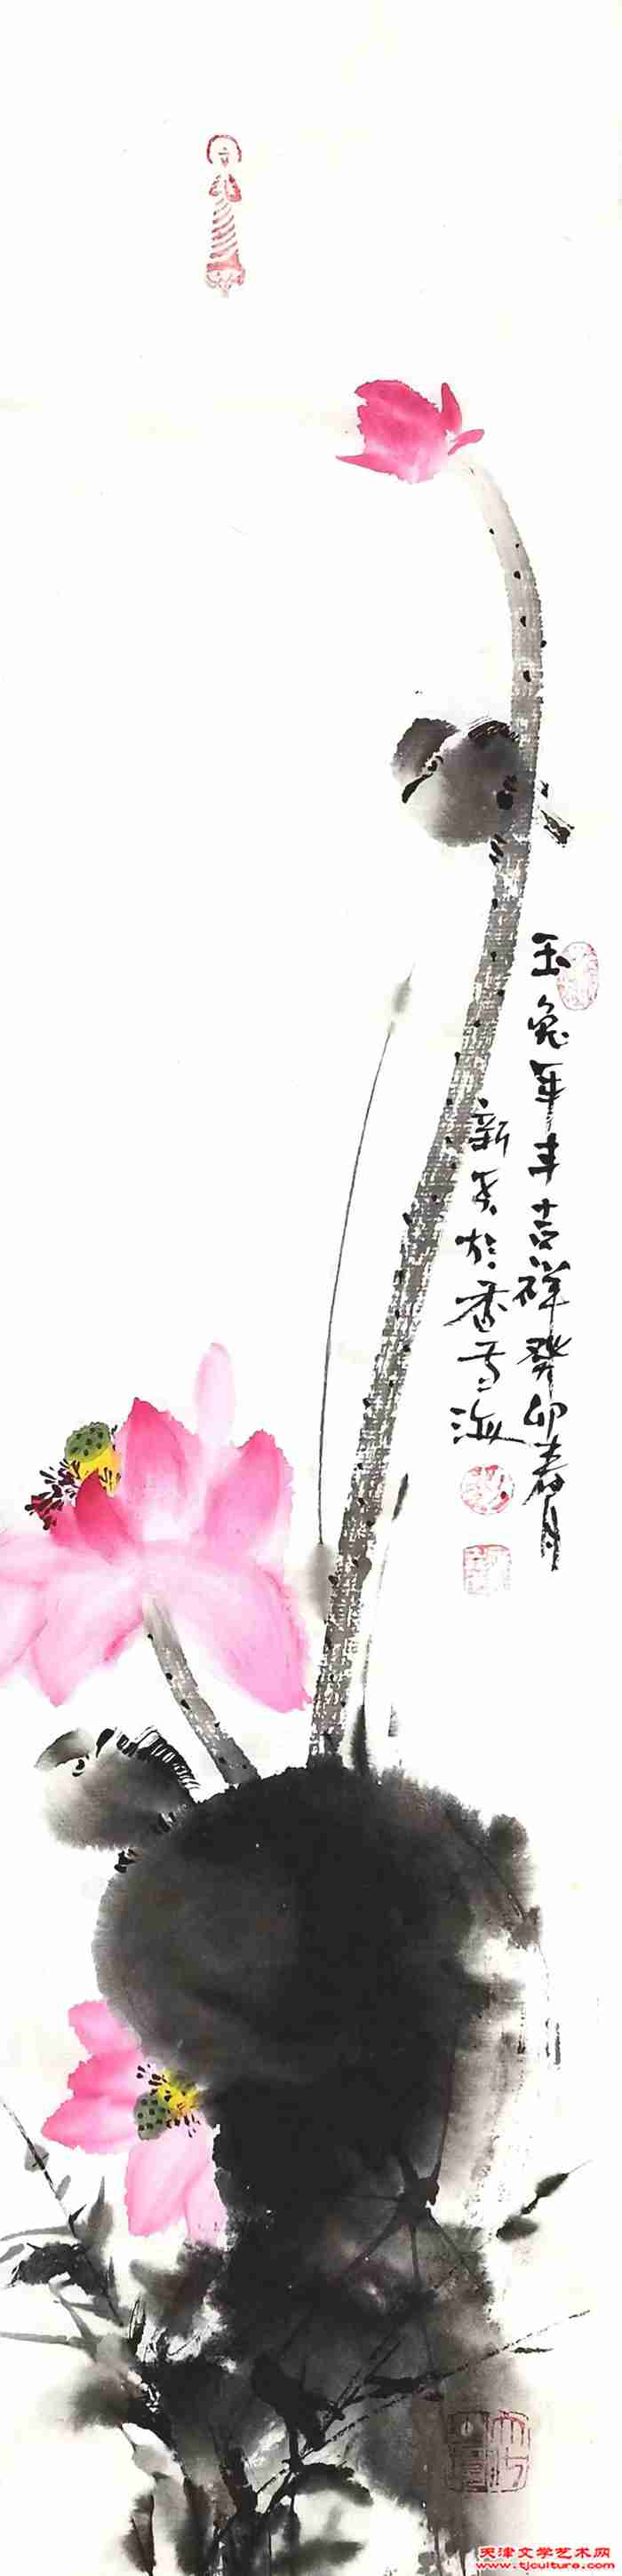 玉兔年丰吉祥癸卯春月
新生於香雪海
天津文学艺术网
www.tjculture.com